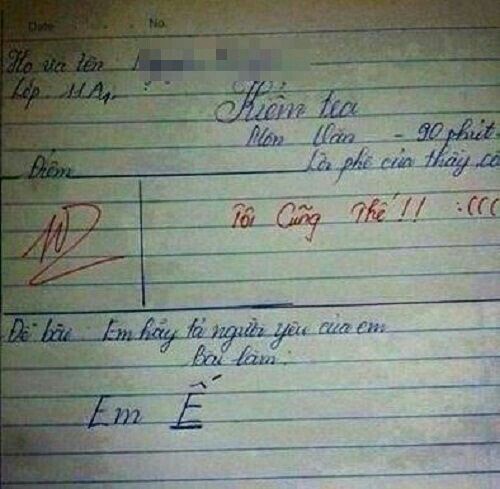 Date No.
Họ và tên:
Lớp 11A1.
Kiểm tra
Môn Văn - 90 phút
Điểm
Lời phê của thầy cô
10
Tôi Cũng Thế!! :(((
Đề bài: Em hãy tả người yêu của em
Bài làm:
Em Ế